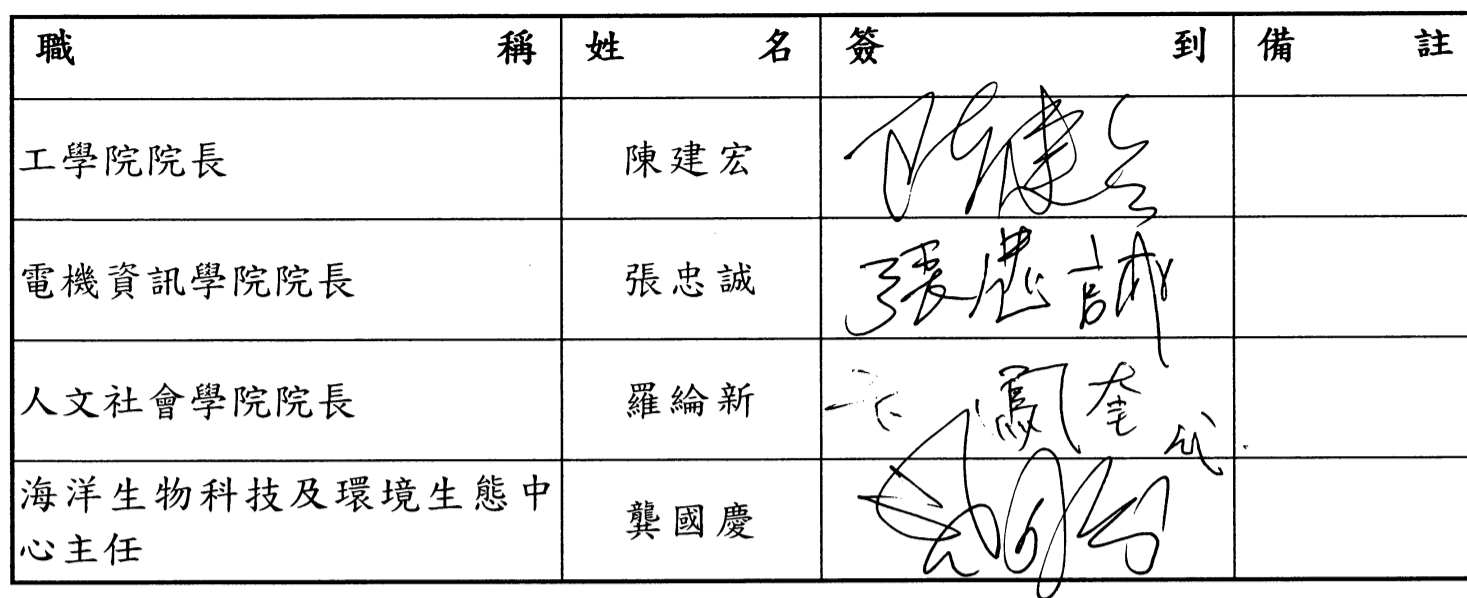 職稱 姓名 簽到 備註
工學院院長 陳建宏 陳建宏
電機資訊學院院長 張忠誠 張忠誠
人文社會學院院長 羅綸新 代
海洋生物科技及環境生態中
心主任 龔國慶